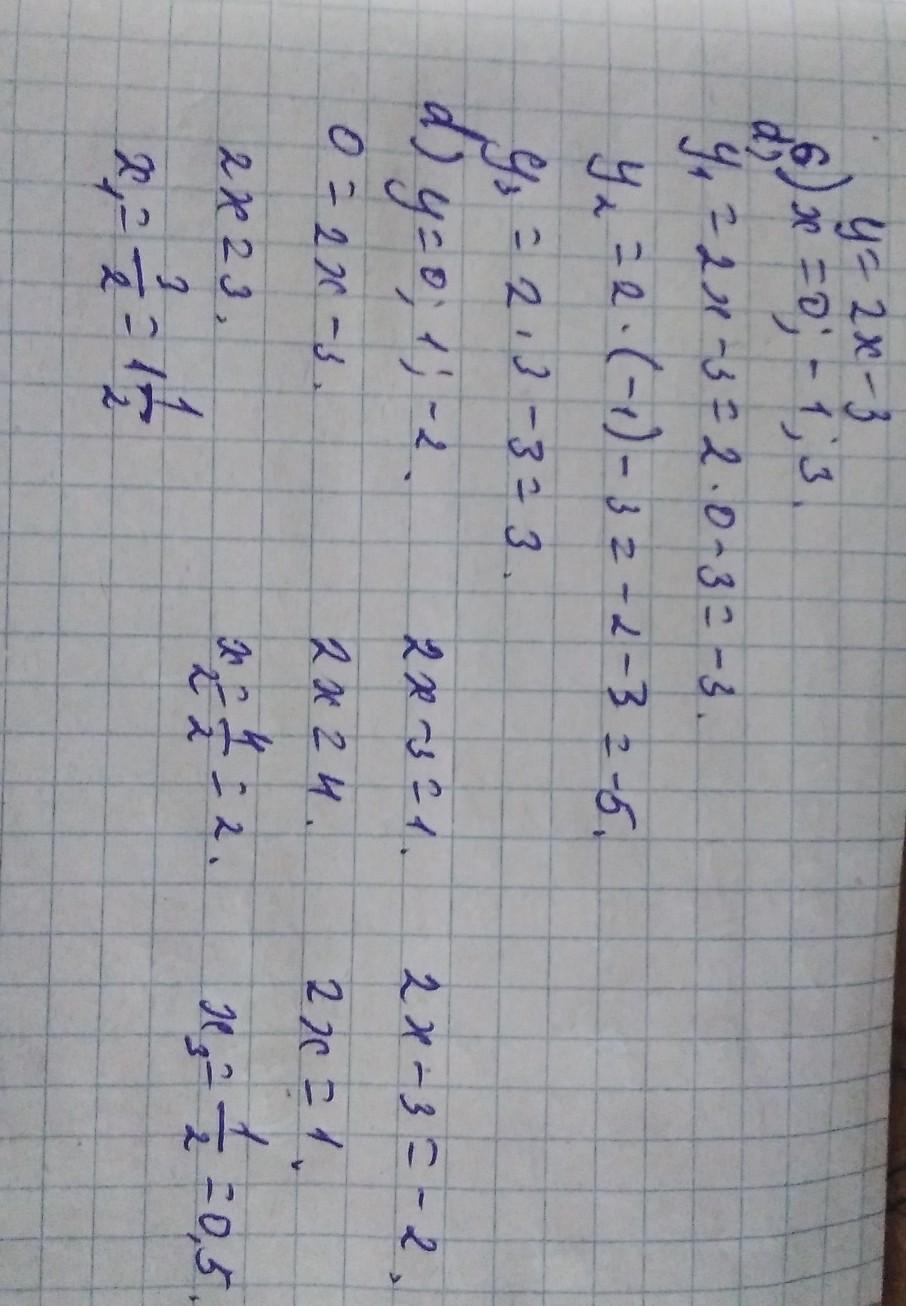 y = 2x - 3
б) x = 0; -1; 3.
y₁ = 2x - 3 = 2·0 - 3 = -3.
y₂ = 2·(-1) - 3 = -2 - 3 = -5.
y₃ = 2·3 - 3 = 3.
д) y = 0; 1; -2.
0 = 2x - 3. 2x - 3 = 1. 2x - 3 = -2.
2x = 3. 2x = 4. 2x = 1.
x₁ = 3/2 = 1 1/2 x₂ = 4/2 = 2. x₃ = 1/2 = 0,5.